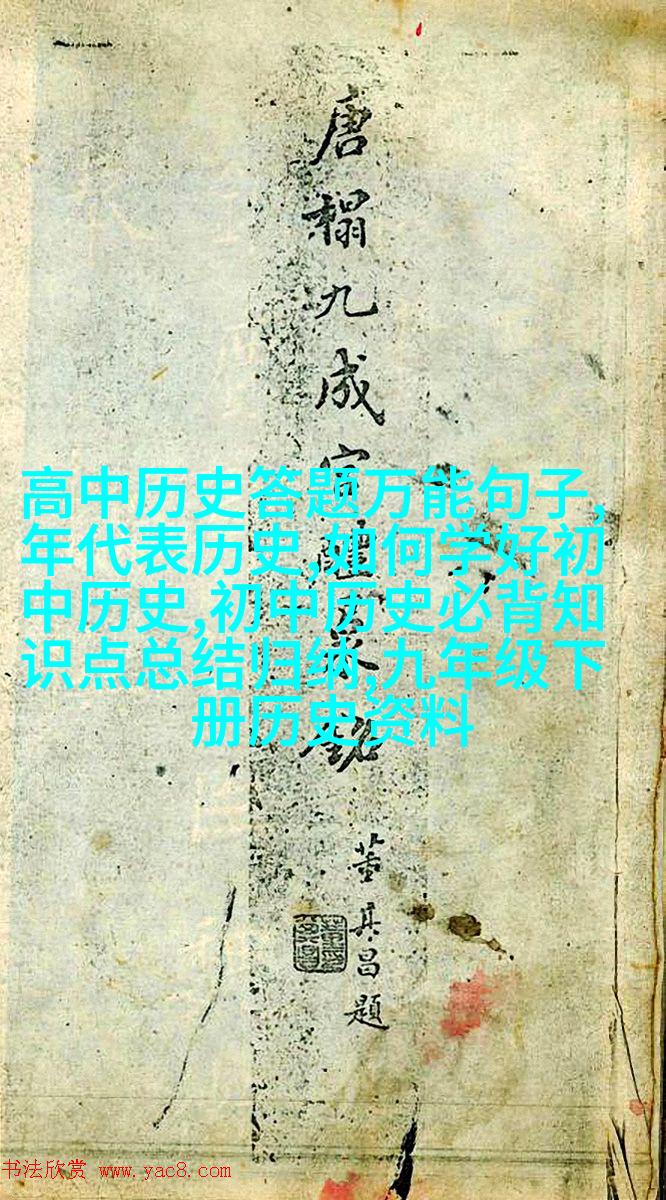 唐榻九成宮醴泉銘
董其昌題
高中历史答题万能句子,
年代表历史,如何学好初
中历史,初中历史必背知
识点总结归纳,九年级下
册历史资料
书法欣赏 www.yac8.com